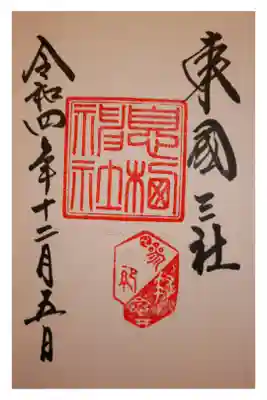 東國三社
息栖神社
令和四年十二月五日